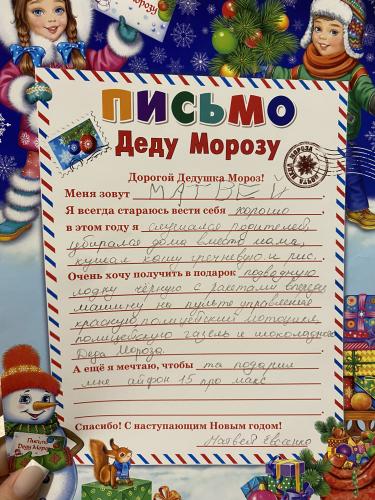 ПИСЬМО
Деду Морозу
Дорогой Дедушка Мороз!
Меня зовут МАТВЕЙ
Я всегда стараюсь вести себя хорошо,
в этом году я слушался родителей,
убирался дома вместо мама,
кушал кашу гречневую и рис.
Очень хочу получить в подарок подводную
лодку чёрную с ракетами впереди
машину на пульте управление
красную, полицейский мотоцикл
полицейскую газель и шоколадного
Деда Мороза.
А ещё я мечтаю, чтобы ты подарил
мне айфон 15 про макс
Спасибо! С наступающим Новым годом!
Матвей Евсенко
Письмо
Деду Морозу